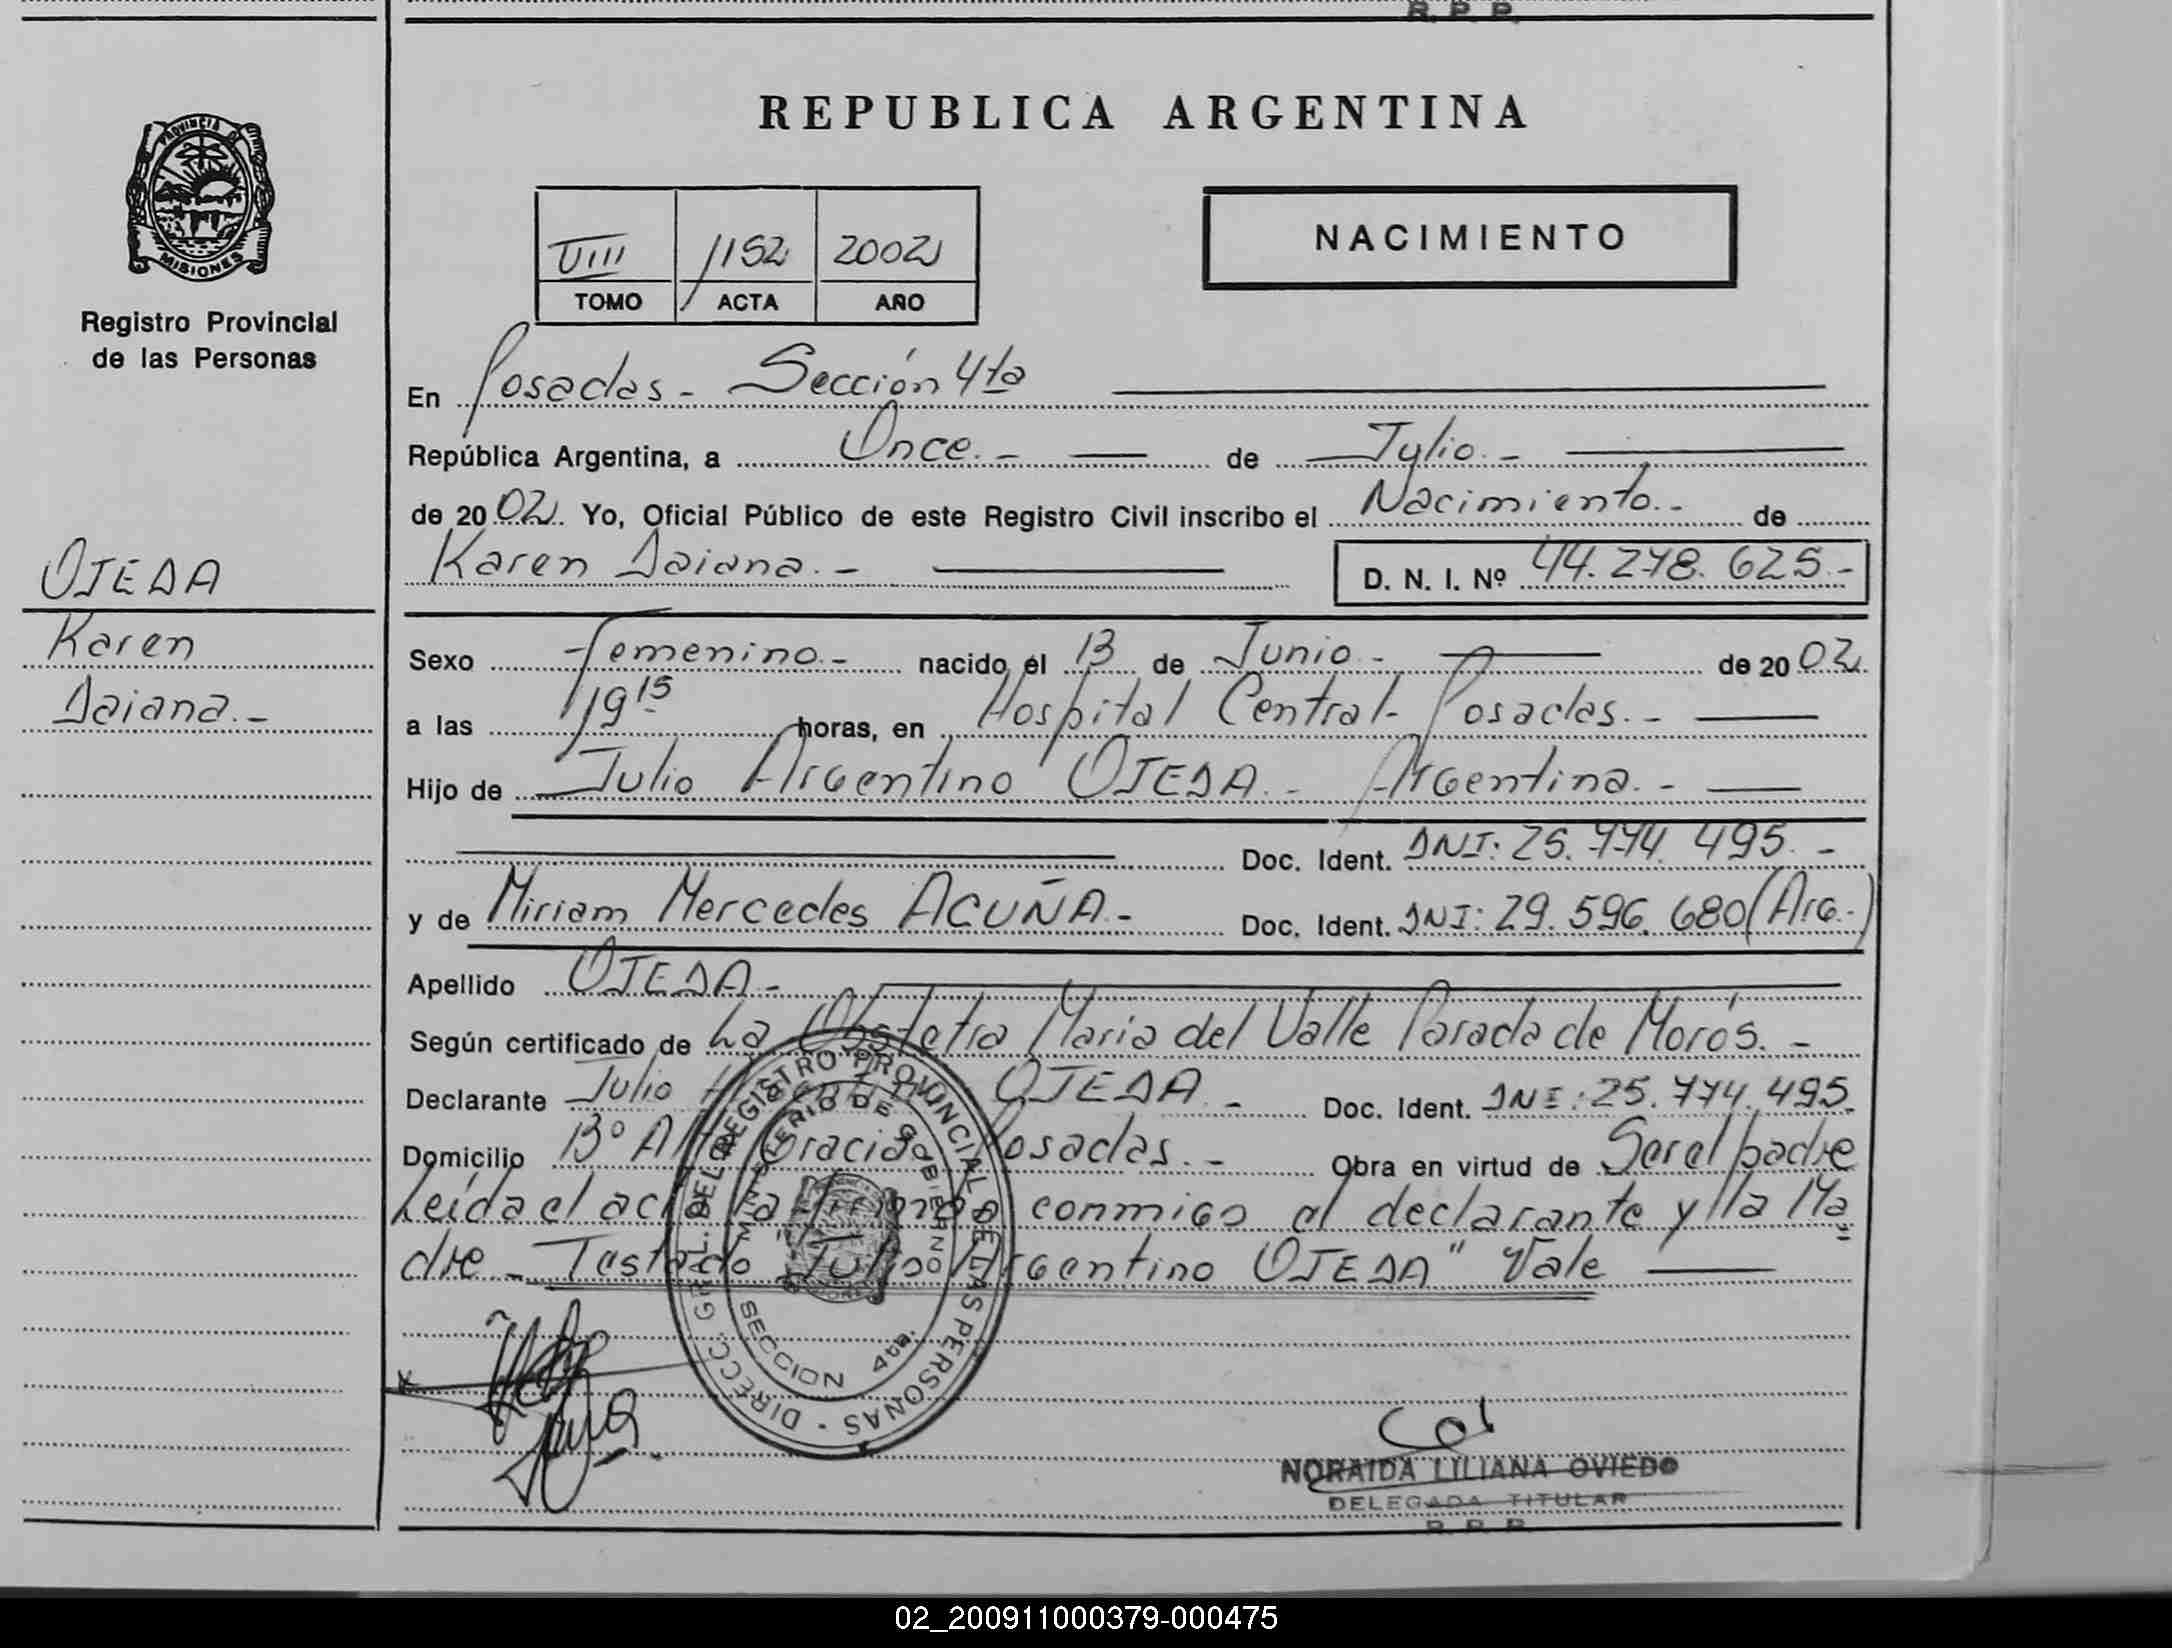 R. P. P.
PROVINCIA DE
MISIONES
Registro Provincial
de las Personas
OJEDA
Karen
Daiana.-
REPUBLICA ARGENTINA
VIII 1152 2002
TOMO ACTA AÑO
NACIMIENTO
En Posadas - Sección 4ta
República Argentina, a Once.- de Julio.-
de 2002. Yo, Oficial Público de este Registro Civil inscribo el Nacimiento.- de
Karen Daiana.- D. N. I. Nº 44.278.625-
Sexo Femenino.- nacido el 13 de Junio.- de 2002
a las 19 15 horas, en Hospital Central- Posadas.-
Hijo de Julio Argentino OJEDA.- Argentina.-
Doc. Ident. DNI: 25.774.495.-
y de Miriam Mercedes ACUÑA.- Doc. Ident. DNI: 29.596.680 (Arg.-)
Apellido OJEDA.-
Según certificado de La Obstetra Maria del Valle Parada de Morós.-
Declarante Julio Argentino OJEDA.- Doc. Ident. DNI: 25.774.495.
Domicilio Bº Alta Gracia Posadas.- Obra en virtud de Ser el padre
Leída el acta la firman conmigo el declarante y lla Ma
dre - Testado "Julio Argentino OJEDA" Vale
DIRECC. GRL. DEL REGISTRO PROVINCIAL DE LAS PERSONAS -
MINISTERIO DE GOBIERNO
SECCION 4ta.
NORAIDA LILIANA OVIEDO
DELEGADA TITULAR
R. P. P.
02_200911000379-000475